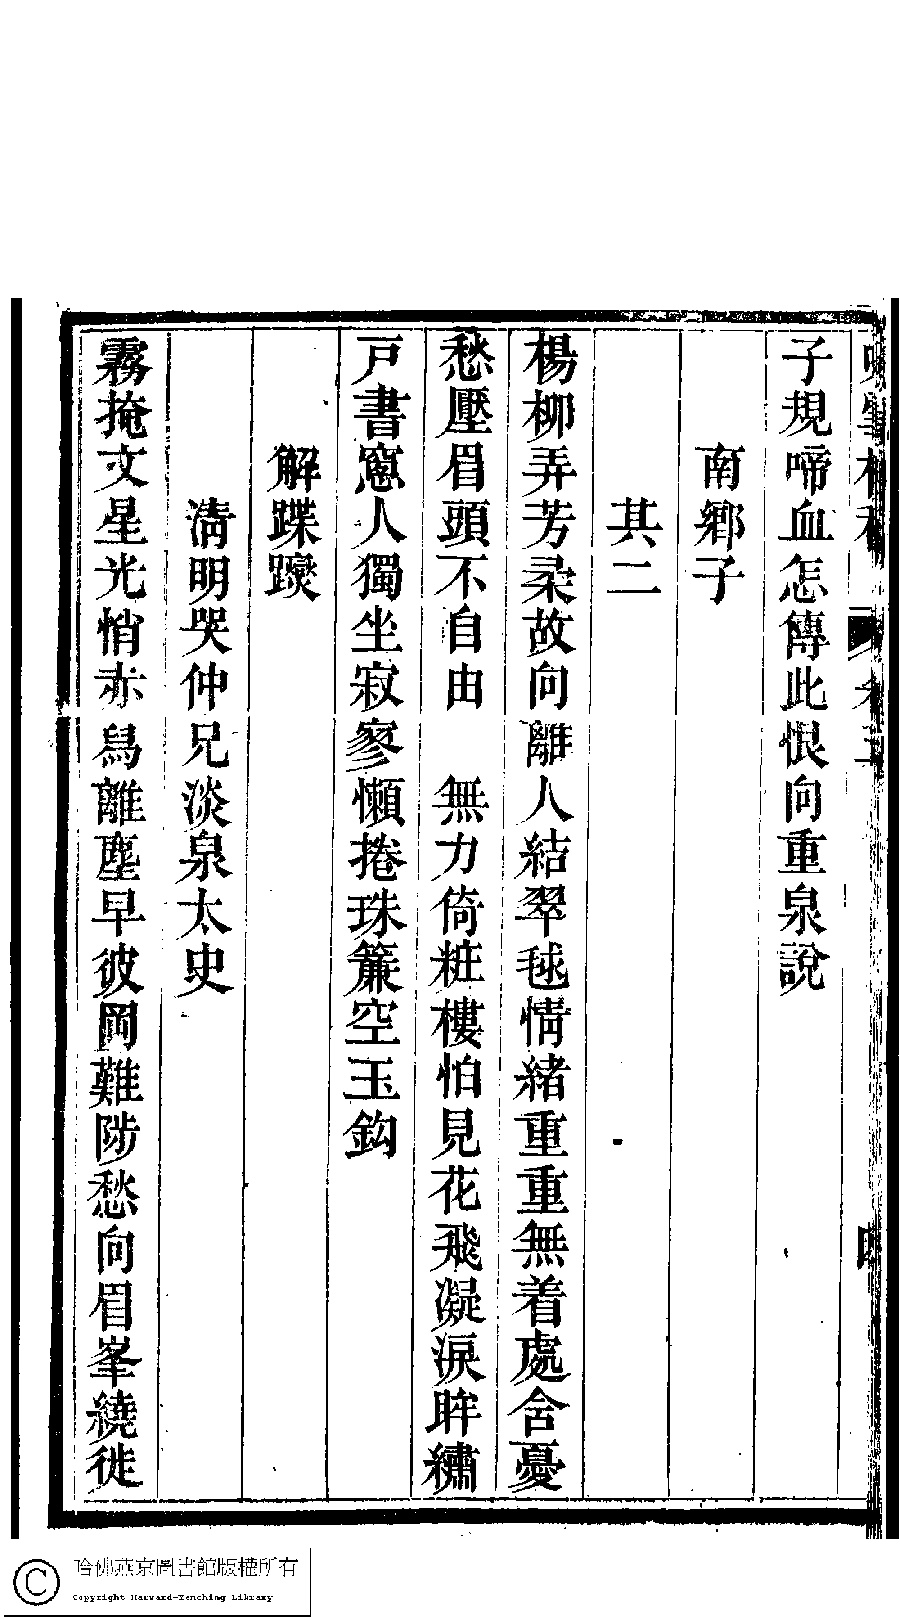 子規啼血怎傳此恨向重泉說
南鄉子
其二
楊柳弄芳柔故向離人結翠毬情緒重重無着處含憂
愁壓眉頭不自由　無力倚粧樓怕見花飛凝淚眸繡
戸書窻人獨坐寂寥懶捲珠簾空玉鈎
解蹀躞
清明哭仲兄淡泉太史
霧掩文星光悄赤舄離塵早彼岡難陟愁向眉峯繞徙
哈佛燕京圖書館版權所有
Copyright Harvard-Yenching Library